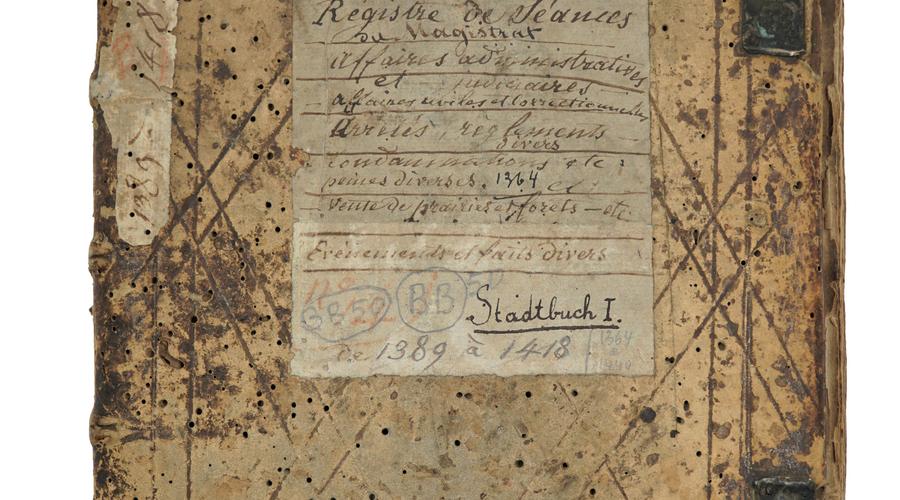 1418
1389
Registre de Séances
du Magistrat
Affaires administratives
et judiciaires
affaires civiles et correctionnelles
Arrêtés, règlements
divers
condamnations & le
peines diverses. 1364 et
vente de prairies et forêts – etc.
Evénements et faits divers
BB 50
BB
50
Stadtbuch I.
de 1389 à 1418
1364